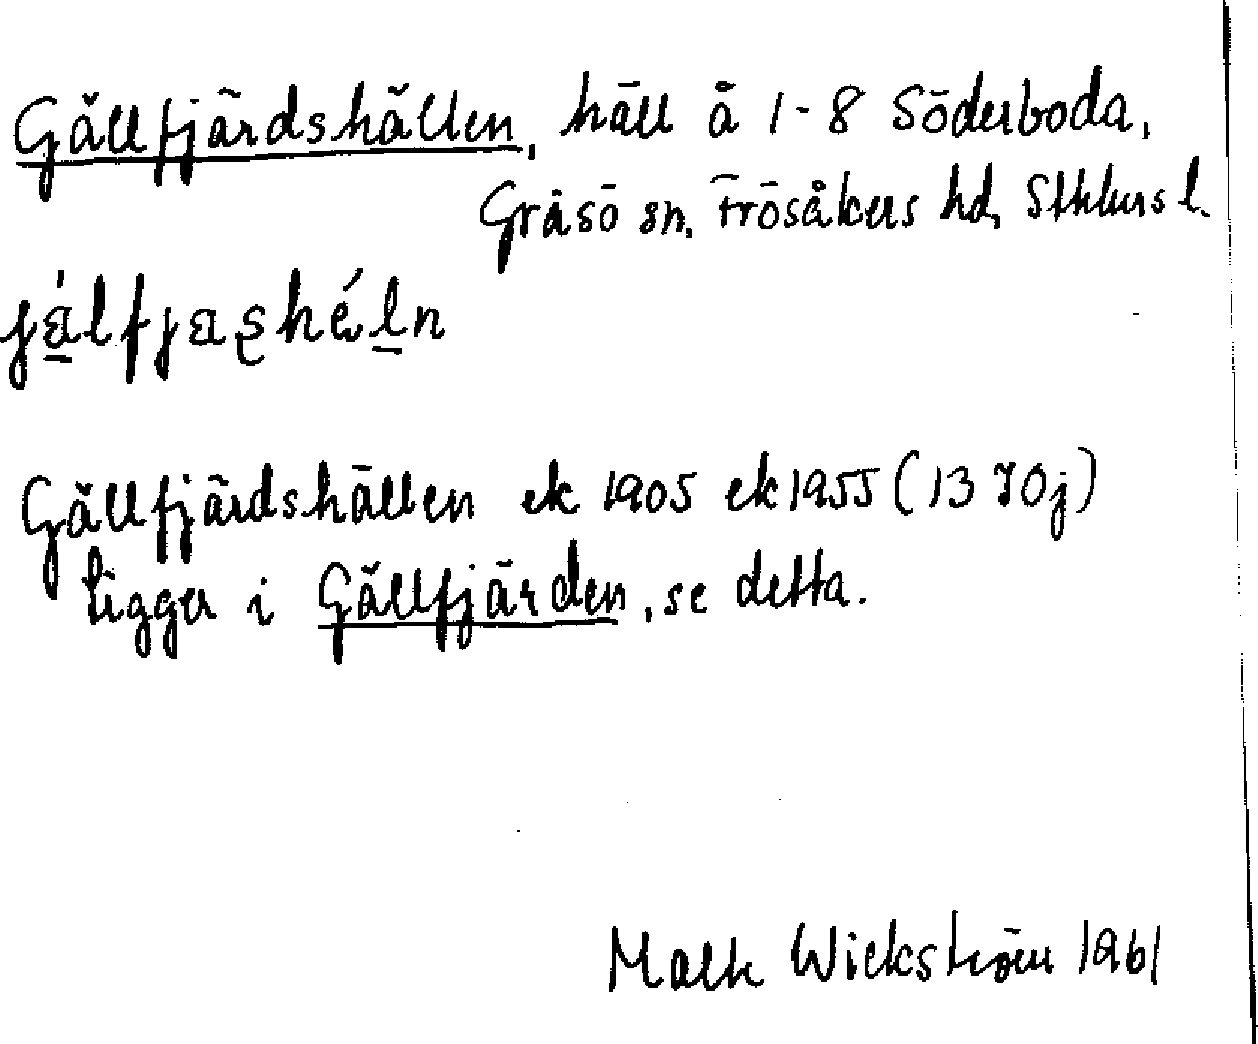 Gällfjärdshällen, häll å 1-8 Söderboda,
Gräsö sn, Frösåkers hd, Sthlms l.
Gällfjärdshällen ek 1905 ek 1955 (13 I 0j)
ligger i Gällfjärden, se detta.
Wickström 1961